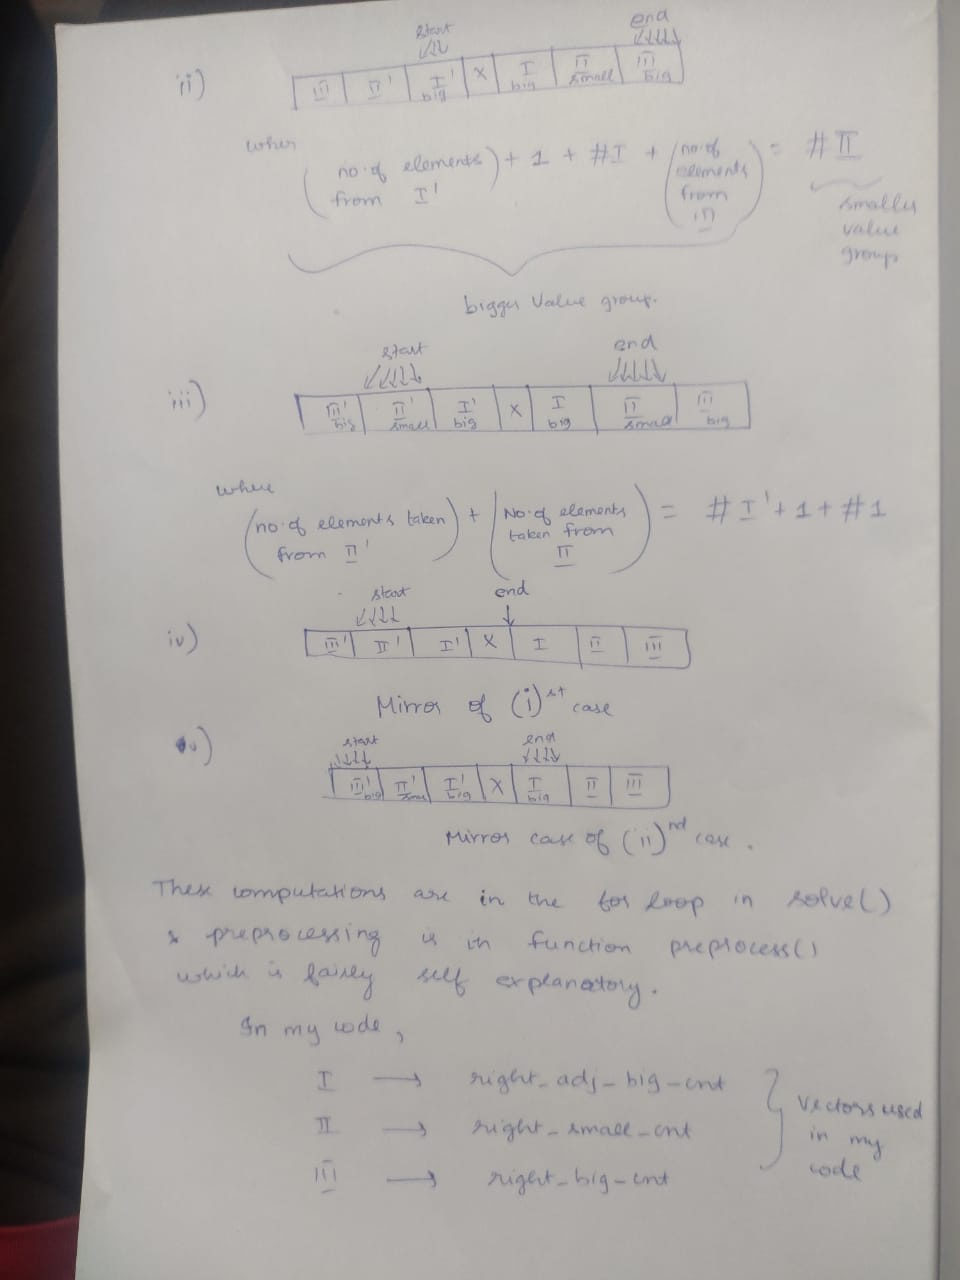 start end
ii) III II' I' big X I big II small III big
wher
(no. of elements from I') + 1 + #I + (no. of elements from III) = #II
smaller value group
bigger value group.
start end
iii) III' big II' small I' big X I big II small III big
where
(no. of elements taken from II') + (No. of elements taken from II) = #I' + 1 + #1
start end
iv) III' II' I' X I II III
Mirror of (i)st case
start end
v) III' big II' I' big X I big II III
Mirror case of (ii)nd case.
These computations are in the for loop in solve()
& preprocessing is in function preprocess()
which is fairly self explanatory.
In my code,
I → right_adj_big_cnt
II → right_small_cnt
III → right_big_cnt
vectors used
in my
code